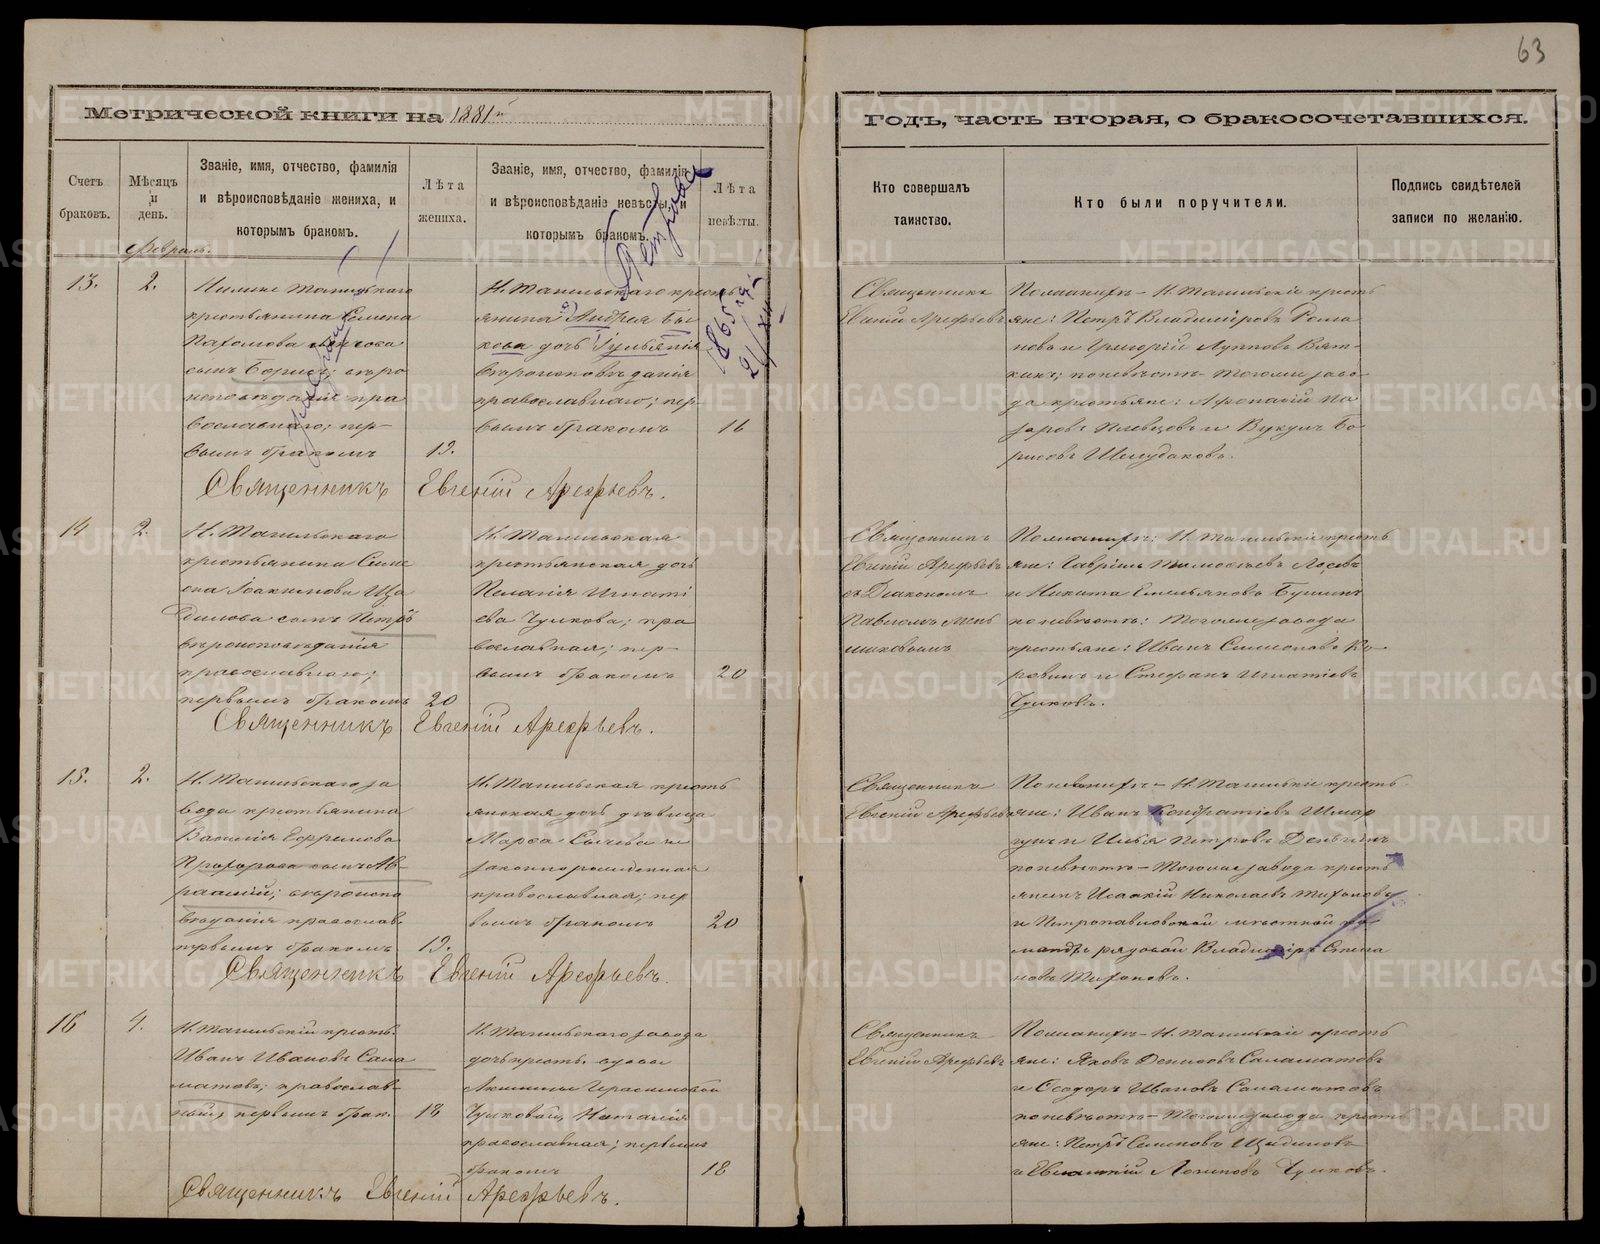 63
Метрической книги на 1881й
Годъ, часть вторая, о бракосочетавшихся.
Счетъ браковъ.
Мѣсяцъ и день.
Званіе, имя, отчество, фамилія
и вѣроисповѣданіе жениха, и
которымъ бракомъ.
Лѣта жениха.
Званіе, имя, отчество, фамилія
и вѣроисповѣданіе невѣсты, и
которымъ бракомъ.
Лѣта невѣсты.
Кто совершалъ
таинство.
Кто были поручители.
Подпись свидѣтелей
записи по желанію.
Февраль.
13.
2.
крестьянина Семена
Пахомова
сынъ Борисъ; вѣро
исповѣданія пра
вославнаго; пер-
вымъ бракомъ
19.
Н. Тагильскаго кресть
янина Андрея Бы
кова дочь
вѣроисповѣданія
православнаго; пер-
вымъ бракомъ
16
Петрова
1865
Священникъ
Евгеній Арефьевъ
По женихѣ - Н. Тагильскіе кресть
яне: Петръ Владиміровъ Рома
новъ и Григорій Лупповъ Вят-
кинъ; по невѣстѣ - тогоже заво
да крестьяне: Афонасій На
заровъ Пѣвцовъ и Вукулъ Бо
рисовъ Шелудяковъ.
Священникъ Евгеній Арефьевъ.
14
2.
Н. Тагильскаго
крестьянина Симе
она Іоакимова Ща
дилова сынъ Петръ
вѣроисповѣданія
православнаго;
первымъ бракомъ
20
Н. Тагильская
крестьянская дочь
Пелагія Игнаті
ева Чулкова; пра
вославная; пер-
вымъ бракомъ
20
Священникъ
Евгеній Арефьевъ
съ Діакономъ
Павломъ Мень
шиковымъ
По женихѣ: Н. Тагильскіе кресть
яне: Гавріилъ Тимофеевъ Лосевъ
и Никита Емельяновъ Бушинъ
по невѣстѣ: тогоже завода
крестьяне: Иванъ Симеоновъ Ко-
ровинъ и Стефанъ Игнатіевъ
Чулковъ.
Священникъ Евгеній Арефьевъ.
15.
2.
Н. Тагильскаго за
вода крестьянина
Василія Ефремова
Прохорова сынъ Ав-
раамій; вѣроиспо
вѣданія православ.
первымъ бракомъ
19.
Н. Тагильская кресть
янская дочь дѣвица
Марѳа Сычева не
законнорожденная
православная; пер
вымъ бракомъ
20
Священникъ
Евгеній Арефьевъ
По женихѣ - Н. Тагильскіе кресть
яне: Иванъ Кондратіевъ Шмар
гунъ и Илья Петровъ Деньгинъ
по невѣстѣ - тогоже завода кресть
янинъ Исаакій Николаевъ Тихоновъ
и Петропавловской мѣстной ко
манды рядовой Владиміръ Степа
новъ Тихоновъ.
Священникъ Евгеній Арефьевъ.
16
4.
Н. Тагильскій кресть.
Иванъ Ивановъ Сала
матовъ; православ-
ный, первымъ брак.
18
Н. Тагильскаго завода
дочь кресть. вдовы
Акилины Герасимовой
Чулковой, Наталія
православная; первымъ
бракомъ
18
Священникъ
Евгеній Арефьевъ
По женихѣ - Н. Тагильскіе кресть
яне: Яковъ Денисовъ Саламатовъ
и Ѳеодоръ Ивановъ Саламатовъ
по невѣстѣ - тогоже завода кресть
яне: Петръ Симеоновъ Щадиловъ
и Логиновъ Чулковъ.
Священникъ Евгеній Арефьевъ.
METRIKI.GASO-URAL.RU